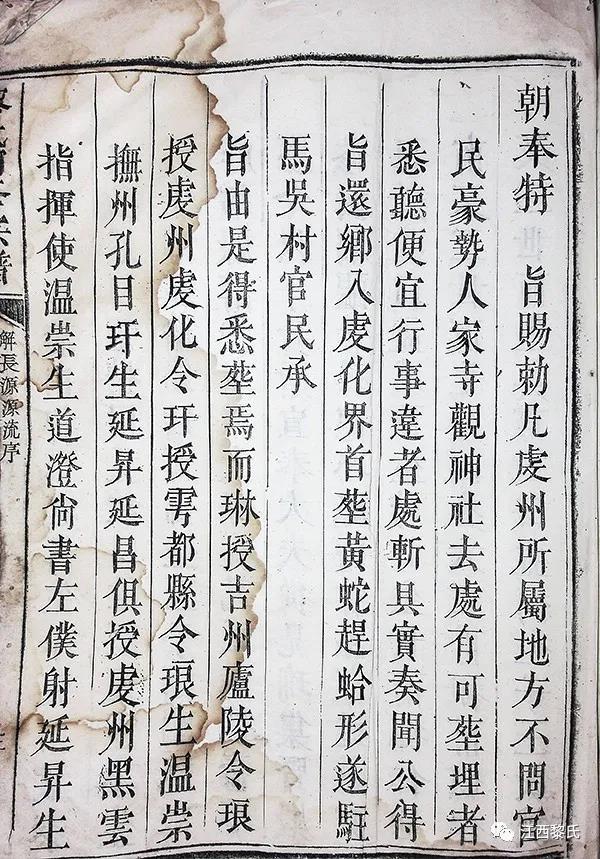 朝奉特　旨賜勅凡虔州所屬地方不問官
民豪勢人家寺觀神社去處有可塟埋者
悉聽便宜行事違者處斬具實奏聞公得
旨還鄉入虔化界首塟黃蛇趕蛤形遂駐
馬吳村官民承
旨由是得悉塟焉而琳授吉州廬陵令琅
授虔州虔化令玕授雩都縣令琅生温崇
撫州孔目玕生延昇延昌俱授虔州黑雲
指揮使温崇生道澄尙書左僕射延昇生
譜
解長源源流序
江西黎氏